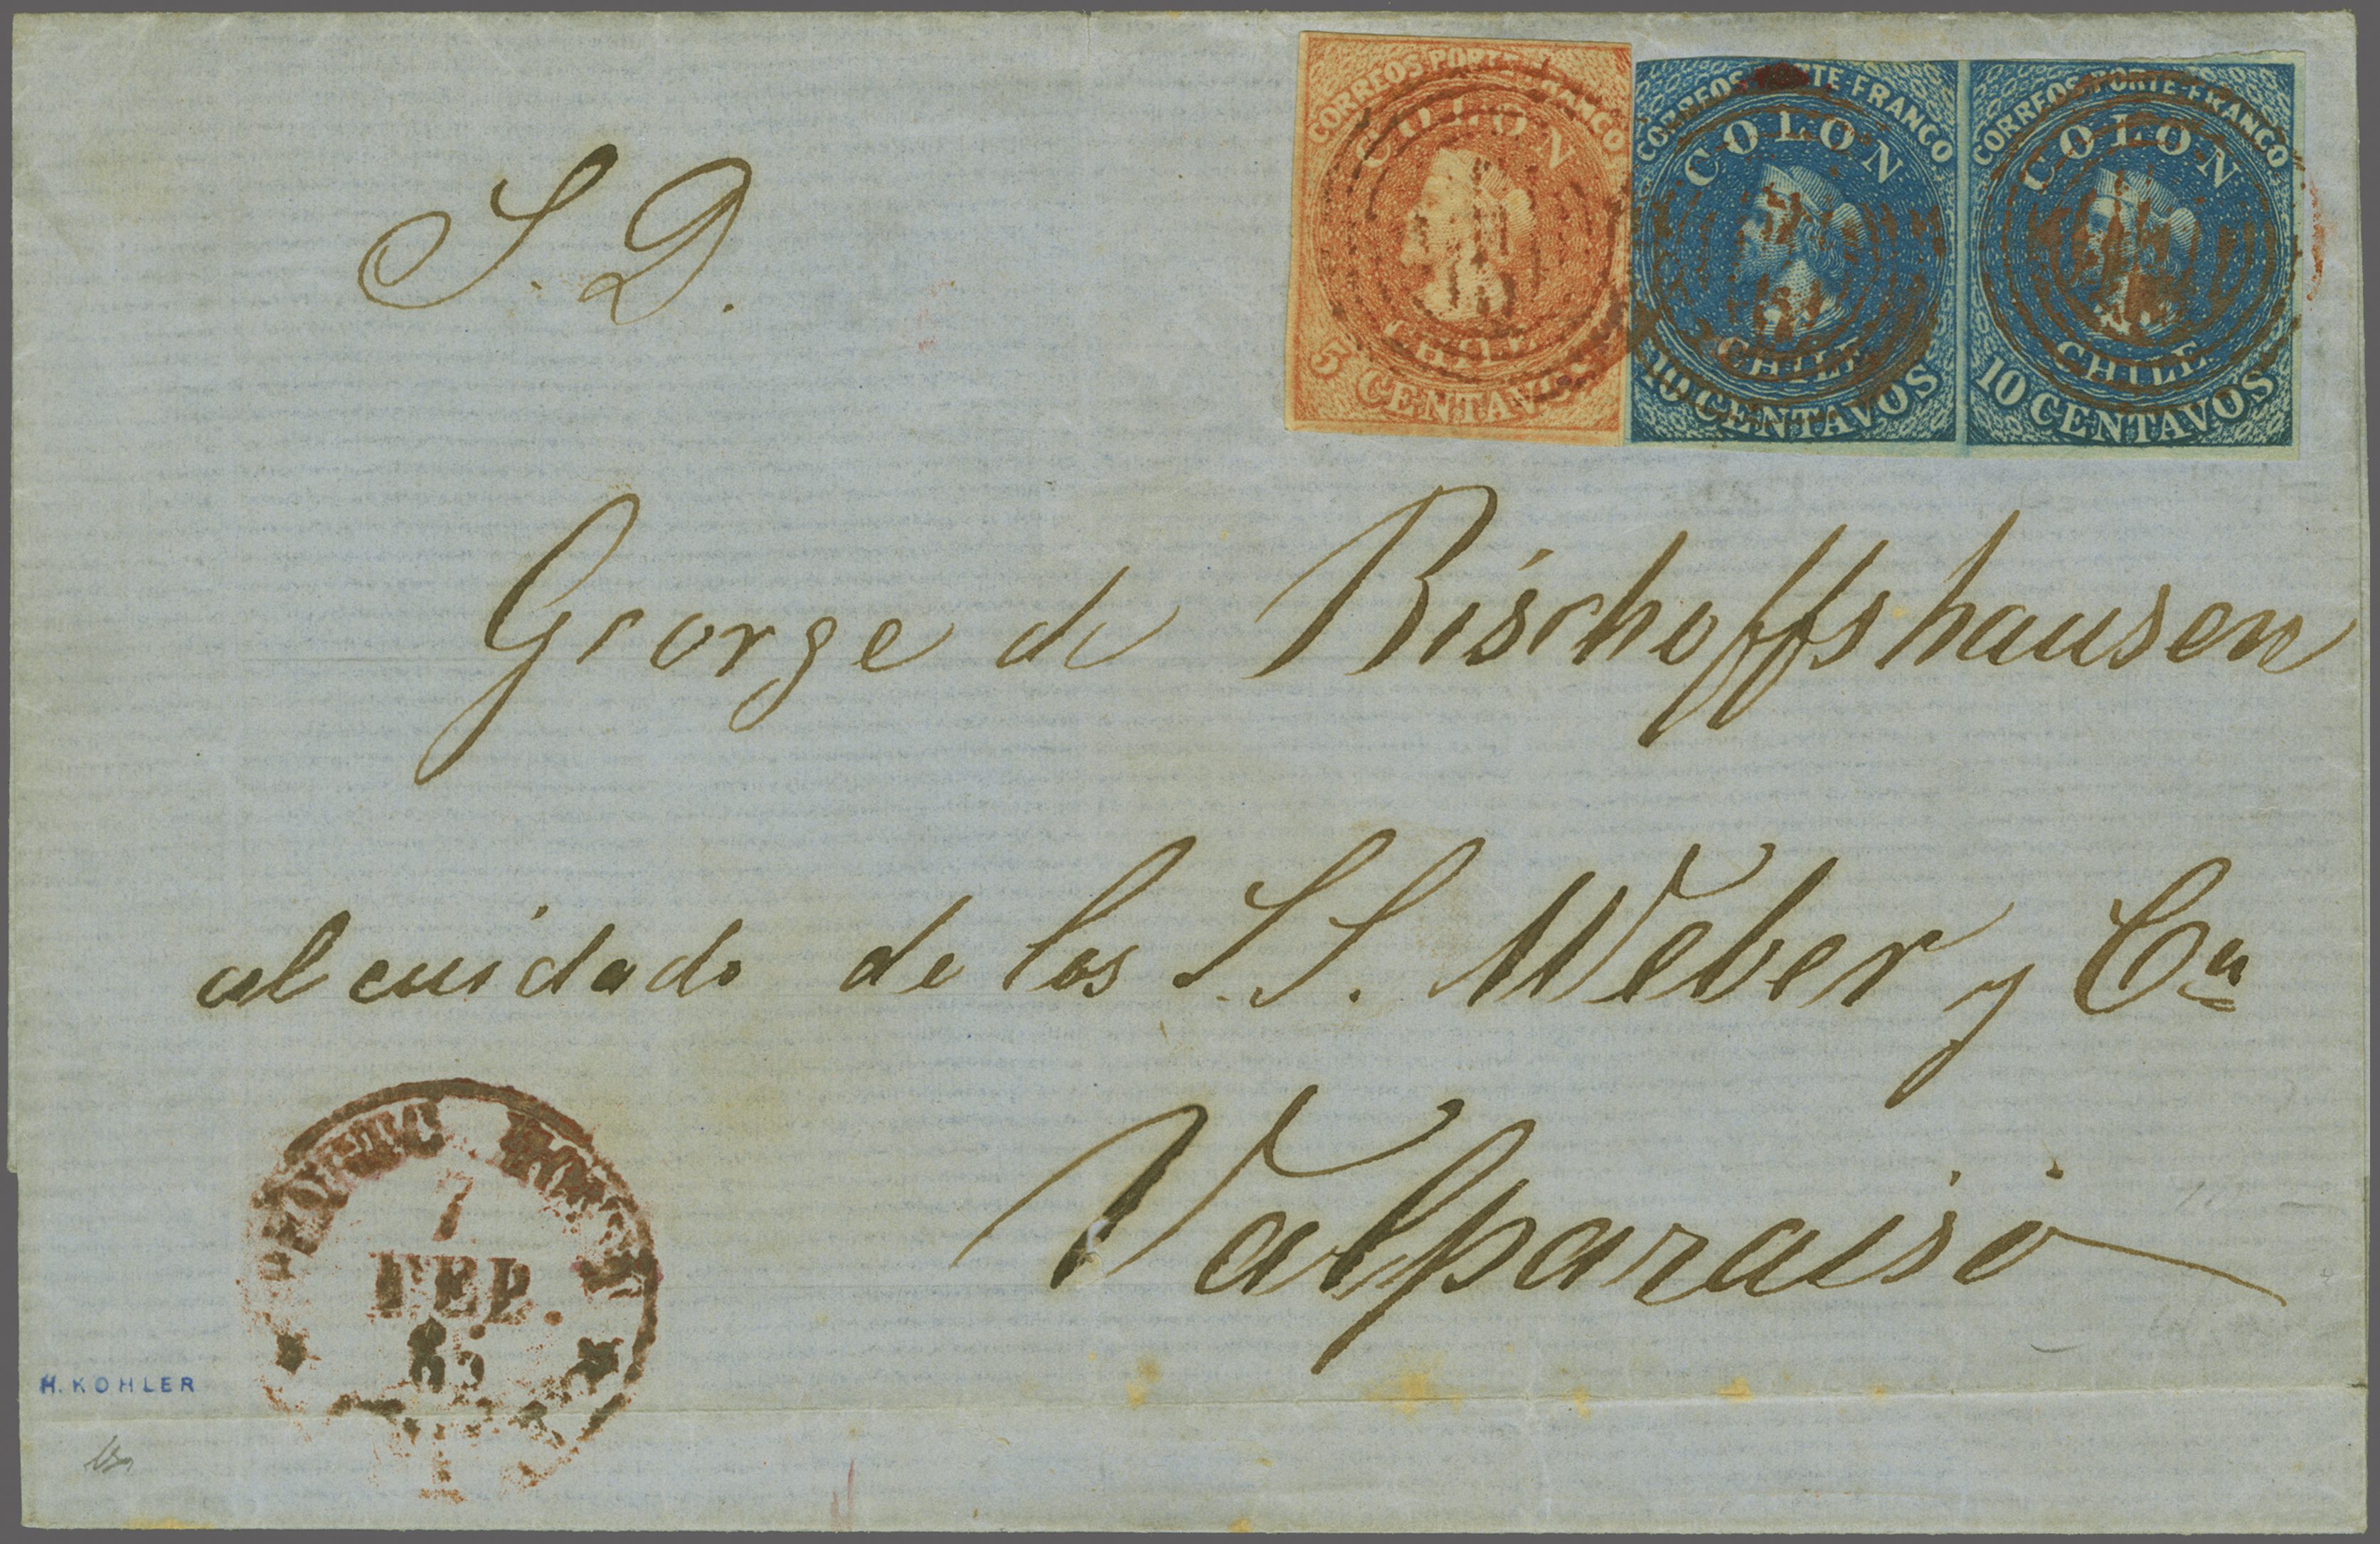 CORREOS PORTE FRANCO
COLON
CHILE
5 CENTAVOS
CORREOS PORTE FRANCO
COLON
CHILE
10 CENTAVOS
CORREOS PORTE FRANCO
COLON
CHILE
10 CENTAVOS
S. D.
George de Bischoffshausen
al cuidado de los S.S. Weber y Ca
Valparaiso
PUERTO MONTT
7
FEB.
65
H. KOHLER